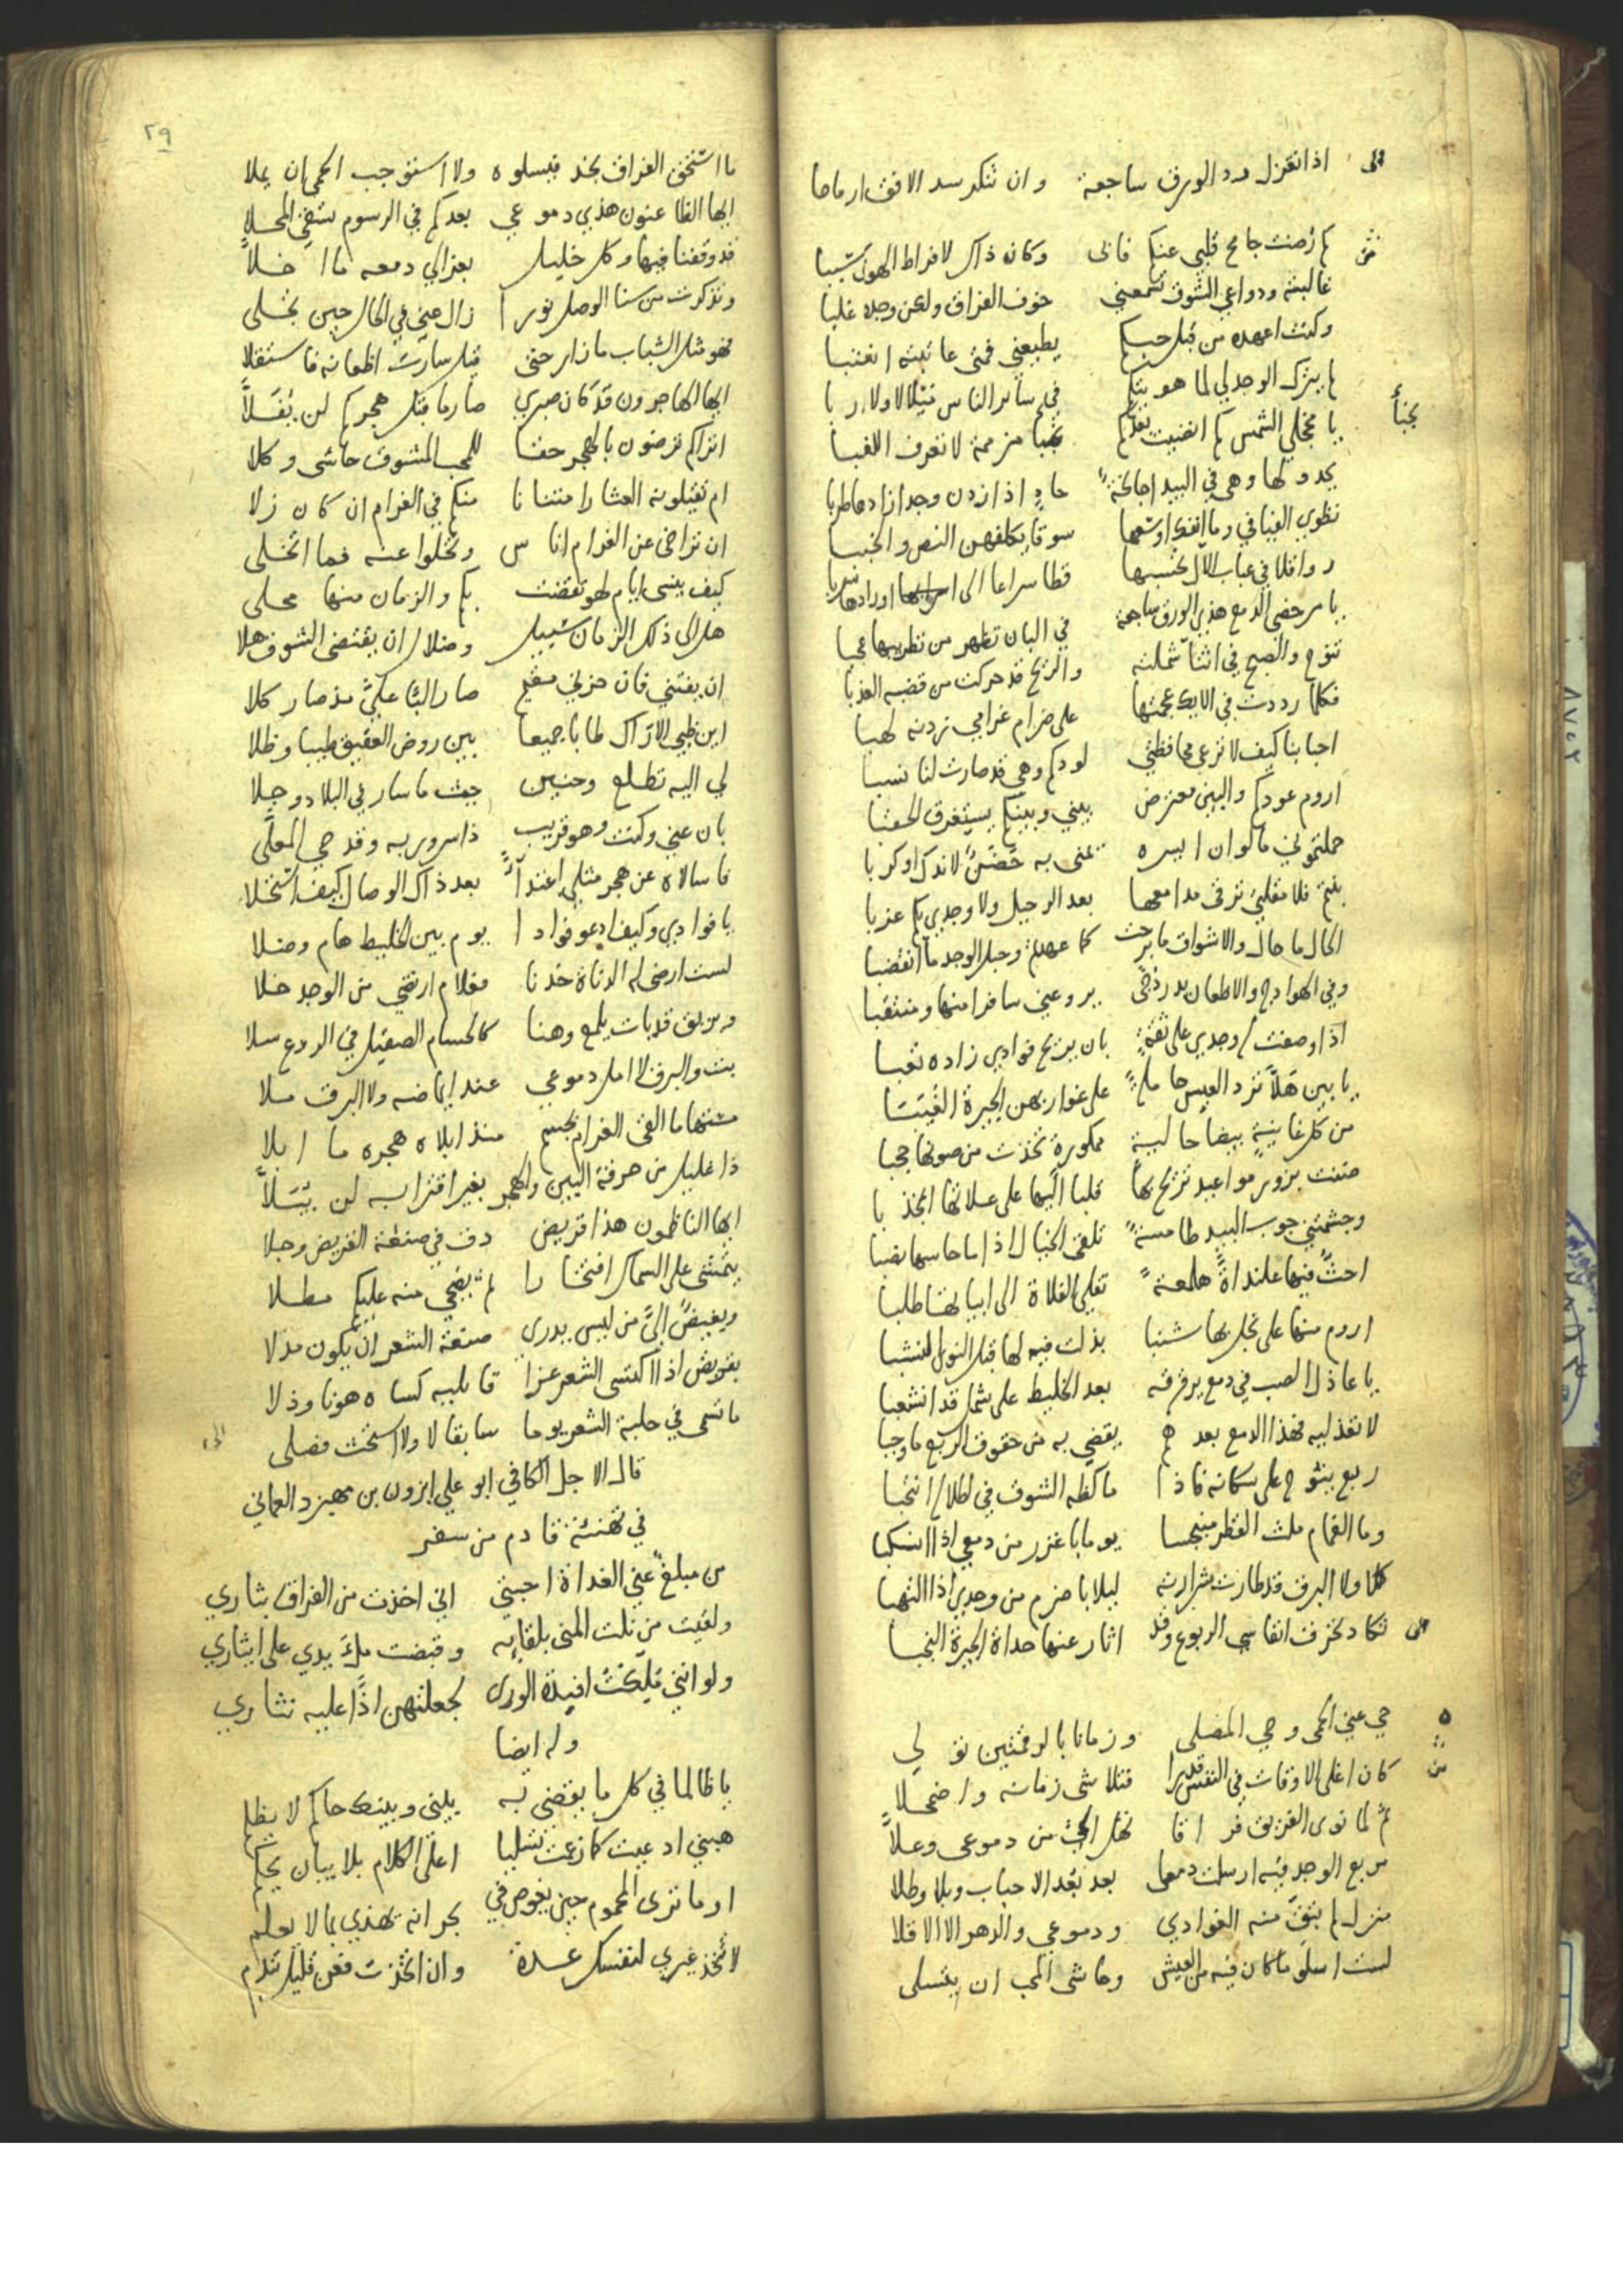 الى اذا تغزل ردد الورق ساجعة وان تنكر سد الافق ارماحا
من كم رضت جامح قلبي عنكم فابى وكان ذاك لافراط الهوى سببا
غالبته ودواعي الشوق تسمعني خوف الفراق ولكن وجده غلبا
وكنت اعهده من قبل حبكم يطيعني فمتى عاتبته اعتبا
لم يترك الوجد لي لما هو بتكم في سائر الناس لا ولا اربا
يا مخجلي الشمس كم انضيت بعدكم نجبا مزممة لا تعرف اللغبا
نجباً
يحدو لها وهي في البيد جامحة حادٍ اذا زدن وجدا زادها طربا
تطوي الفيافي وما انفك اوسعها سوقا يكلفهن النص والخببا
رواقلا في عباب الآل تحسبها قطا سراعا الى اورادها
يا مرخص الدمع هذي الورق ساجعة في البان تظهر من تطريبها عجبا
تنوح والصبح في اثنا شملته والريح قد حركت من قضبه العذبا
فكلما رددت في الايك عجمتها على ضرام غرامي زدنه لهبا
احبابنا كيف لا ترعى محافظتي لودكم وهي قد صارت لنا نسبا
اروم عودكم والبين معترض بيني وبينكم يستغرق الحقبا
حملتموني ما لو ان ايسره يمنى به حضن لاندك او كربا
بنتم فلا مقلتي ترقى مدامعها بعد الرحيل ولا وجدي بكم عزبا
الحال ما حال والاشواق ما برحت كما عهدتم وحبل الوجد ما انقضبا
وفي الهوادج والاظعان بدر دجى يروعني سافرا منها ومنتقبا
اذا وصفت له وجدي على ثقة بان يريح فوادي زاده تعبا
يا بين هلا ترد العيس حاملة على غواربهن الجيرة الغيبا
من كل غانية بيضا حالية ممكورة تخذت من صونها حجبا
منت بزور مواعيد تريح بها قلبا اليها على علاتها انجذبا
وجشمتني جوب البيد طامسة تلقى الخيال اذا ما جاسها نصبا
احث فيها علنداة هلمعة تفلي الفلاة الى ابياتها طلبا
اروم منها على بخل بها شنبا بذلت فيه لها قبل النوى النشبا
يا عاذل الصب في دمع يرقرقه بعد الخليط على شمل قد انشعبا
لا تعذليه فهذا الدمع بعدهم يقضي به من حقوق الربع ما وجبا
ربع ينوح على سكانه فاذا ما كظه الشوق في اطلاله انتحبا
وما الغمام ملث القطر منبجسا يوما باغزر من دمعي اذا انسكبا
كلا ولا البرق قد طارت شرارته ليلا باضرم من وجدي اذا التهبا
الى تكاد تحرق انفاسي الربوع وقد اثار عنها حداة الجيرة النجبا
ه
من حي عني الحمى وحي المصلى وزمانا بالرقمتين تولى
كان اغلى الاوقات في النفس قدرا فتلاشى زمانه واضمحلا
ثم لما نوى الفريق فراقا نهل الحب من دموعي وعلا
مربع الوجد فيه ارسلت دمعا بعد بعد الاحباب وبلا وطلا
منزل لم يبق منه الغوادي ودموعي والدهر الا الاقلا
لست اسلو ما كان فيه من العيش وحاشى المحب ان يتسلى
٢٩
ما استحق الفراق بجد فيسلوه ولا استوجب الحمى ان يملا
ايها الظاعنون هذي دموعي بعدكم في الرسوم تسقي المحلا
قد وقفنا فيها وكل خليل بعزالي دمعه ما اخلا
وتذكرت من سنا الوصل نورا زال عني في الحال حين تجلى
فهو مثل الشباب ما زار حتى قيل سارت اظعانه فاستقلا
ايها الهاجرون قد كان صبري صارما قبل هجركم لن يفلا
اتراكم ترضون بالهجر حقا للمحب المشوق حاشى وكلا
ام تقيلونه العثار امتنانا منكم في الغرام ان كان زلا
ان تراخى عن الغرام اناس وتخلوا عنه فما اتخلى
كيف ينسى ايام لهو تقضت بكم والزمان منها محلى
هل الى ذلك الزمان سبيل وضلال ان يقتضى الشوق هلا
ان يفتني فان حزني مقيم صار البا علي مذ صار كلا
اين ظبي الاراك طابا جميعا بين روض العقيق طيبا وظلا
لي اليه تطلع وحنين حيث ما سار في البلاد وحلا
بان عني وكنت وهو قريب ذا سرور به وقدحي المعلى
فاسالاه عن هجر مثلي اعتداً بعد ذاك الوصال كيف استحلا
يا فوادي وكيف ادعو فوادا يوم بين الخليط هام وضلا
لست ارضى له الدناة خدنا فعلام ارتضي من الوجد خلا
وبريق قد بات يلمع وهنا كالحسام الصقيل في الروع سلا
بت والبرق لا امل دموعي عند ايماضه ولا البرق ملا
مشبها ما القى الغرام بجسم منذ ابلاه هجره ما ابلا
ذا غليل من حرقة البين والهجر بغير اقترابه لن يبلا
ايها الناظمون هذا قريض دق في صنعة القريض وجلا
يتمشى على السماك افتخارا ثم يضحي منه عليكم مطلا
وبغيض الي من ليس يدري صنعة الشعر ان يكون مدلا
بقريض اذا اكتسى الشعر عزا قايليه كساه هونا وذلا
ما تسمى في حلبة الشعر يوما سابقا لا ولا استحق فصلى الى
قال الاجل الكافي ابو علي ابزون بن مهبزد العماني
في تهنئة قادم من سفر
من مبلغ عني الغداة احبتي اني اخذت من الفراق بثاري
ولقيت من نلت المنى بلقايه وقبضت ملء يدي على ايثاري
ولو انني ملكت افيدة الورى لجعلتهن اذا عليه نثاري
وله ايضا
يا ظالما في كل ما يقضي به بيني وبينك حاكم لا يظلم
هبني ادعيت كما زعمت تشليا اعلى الكلام بلا بيان يحكم
او ما ترى المحموم حين يغوص في بحرانه يهذي بما لا يعلم
لا تتخذ غيري لنفسك عدة وان اتخذت فعن قليل تندم